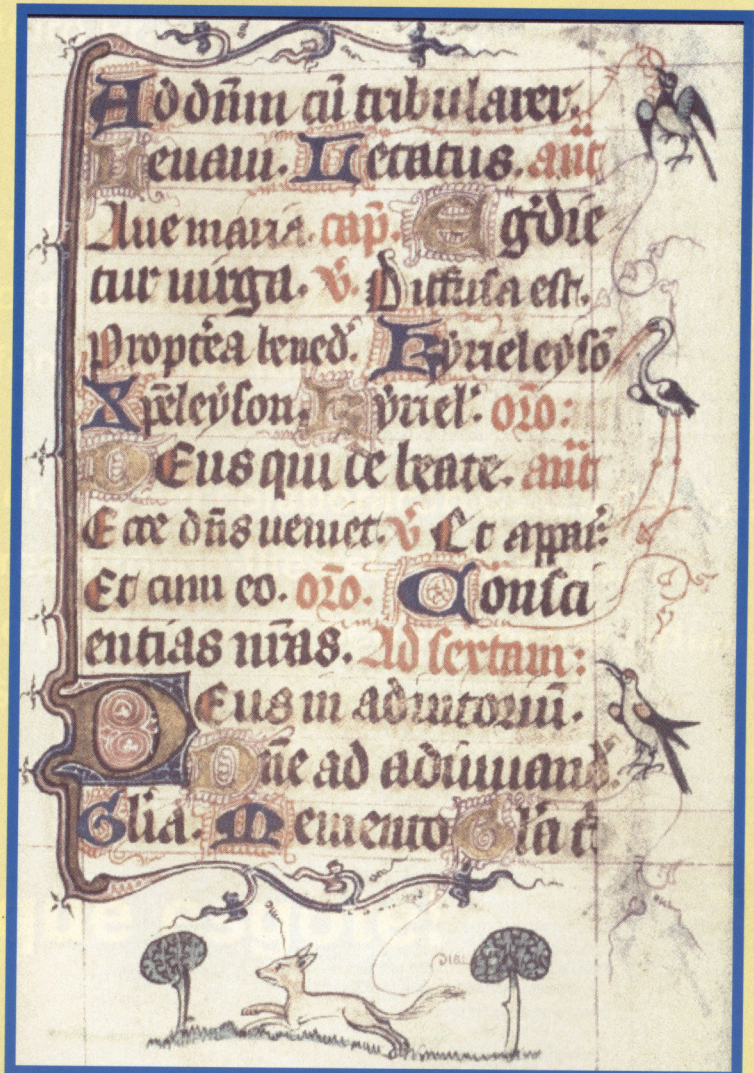 Ad dn̄m cū tribularer.
Leuaui. Letatus. an̄t
Aue maria. cap̄. Egr̄die
tur uirga. v̄. Diffusa est.
Propt̄ea bened᷎. Kyrieleyso̅
Xp̄eleyson. Kyriel᷎. oro᷎:
DEus qui de beate. an̄t
Ecce dn̄s ueniet. v̄ Et appar᷎:
Et cum eo. oro᷎. Consci
entias nr̄as. Ad sextam:
DEus in adiutoriū.
Dn̄e ad adiuuand᷎.
Gl̄ia. Memento Gl̄ia t᷎.